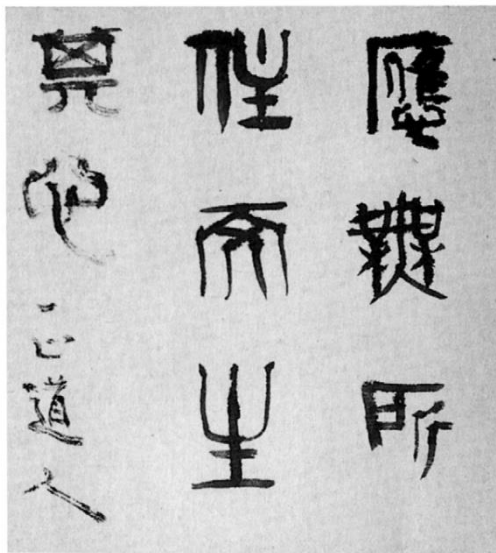 應無所
住而生
其心 一止道人